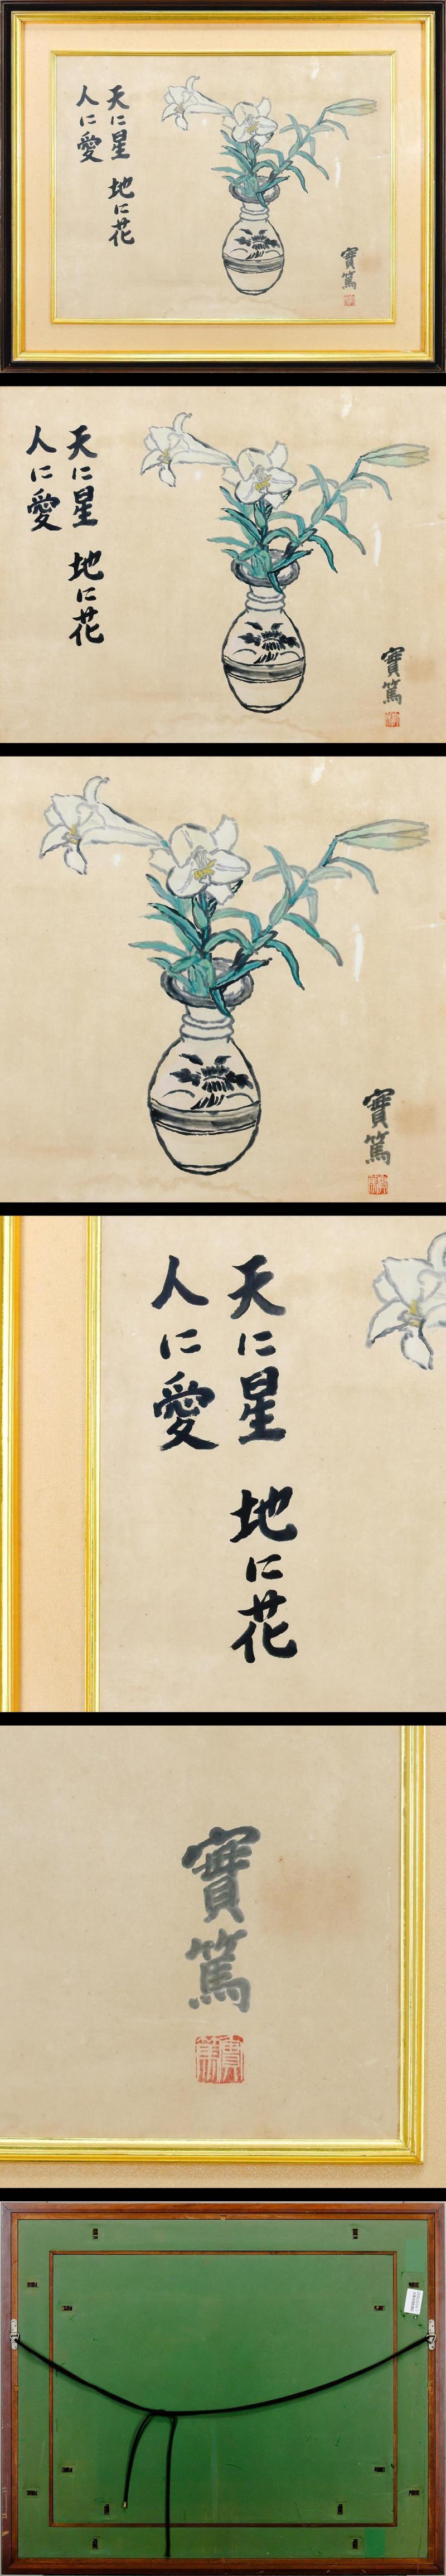 天に星 地に花
人に愛
實篤
天に星 地に花
人に愛
實篤
實篤
天に星 地に花
人に愛
實篤